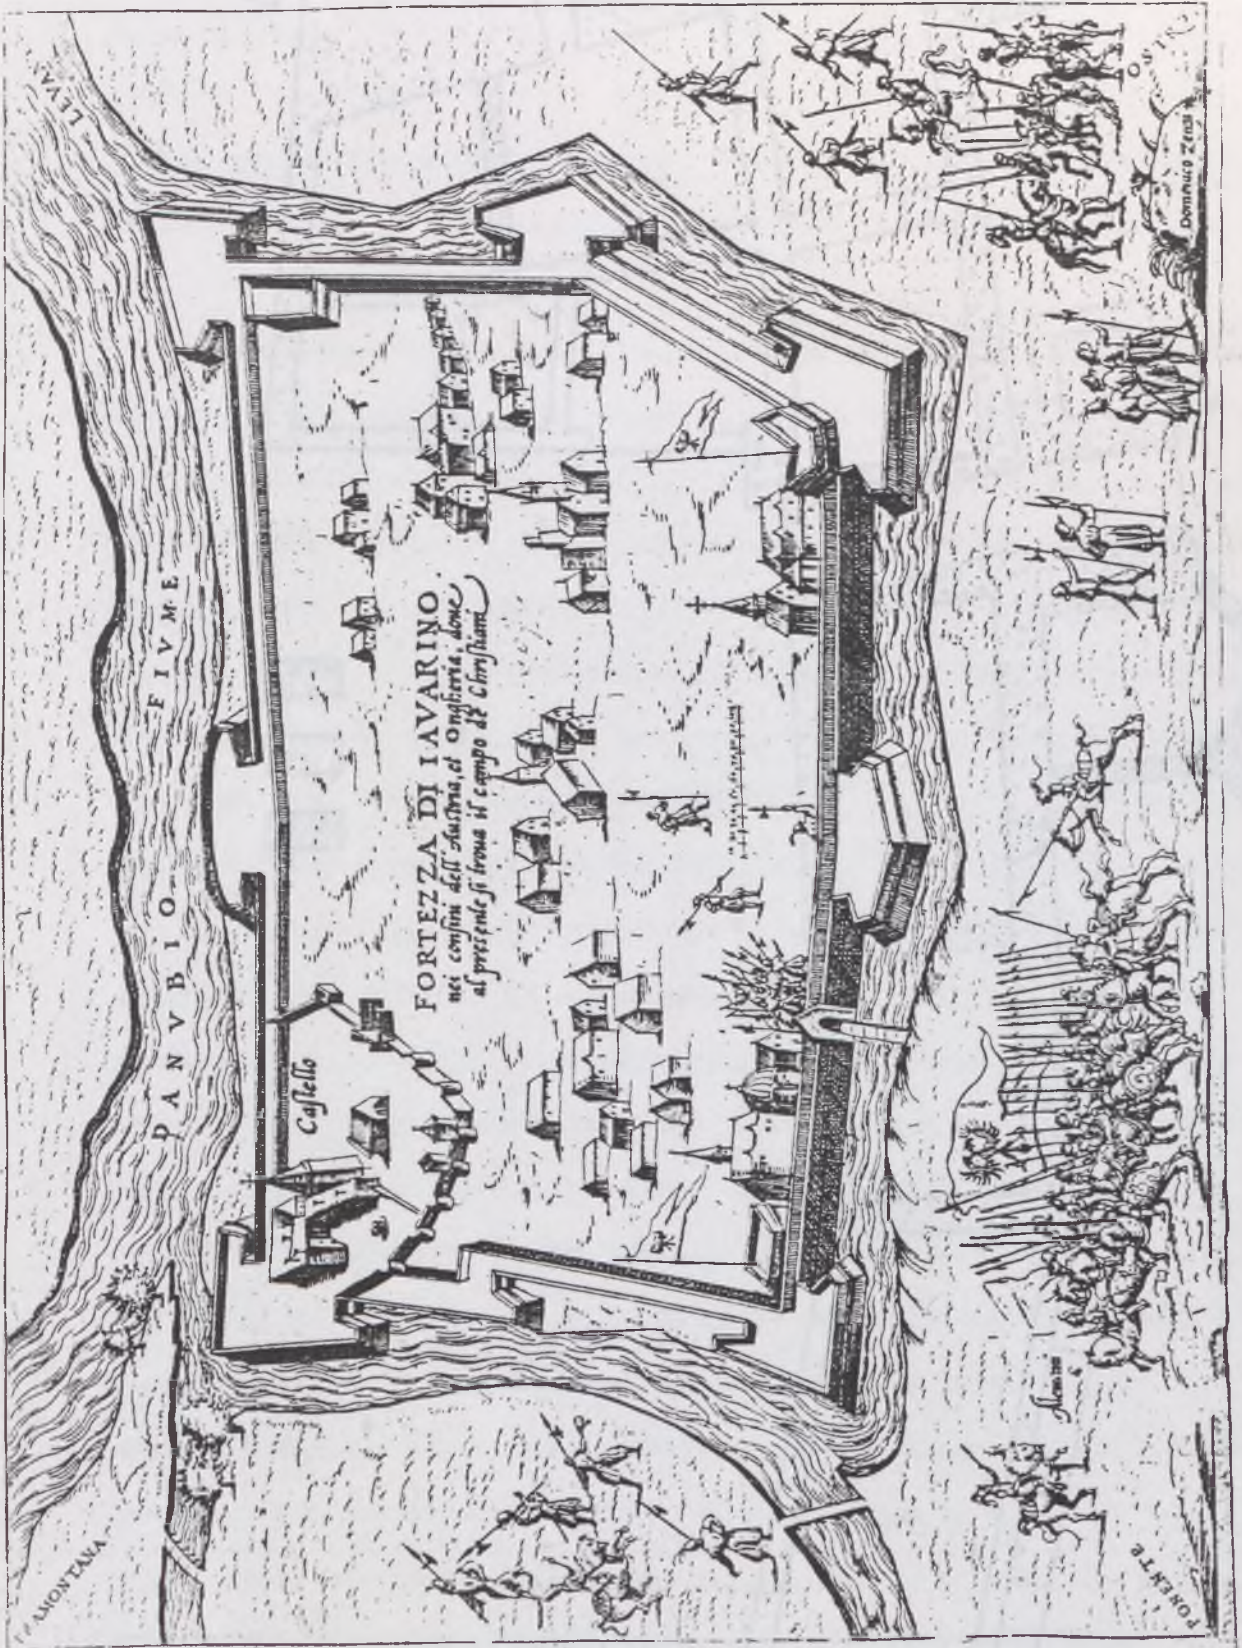 LEVAN
DANVBIO FIVME
AMONTANA
Castello
FORTEZZA DI IAVARINO
nei confini dell'Austria, et Ongheria, doue
al presente si troua il campo dè Christiani
OSTRO
Dominico Zenoi
PONENTE